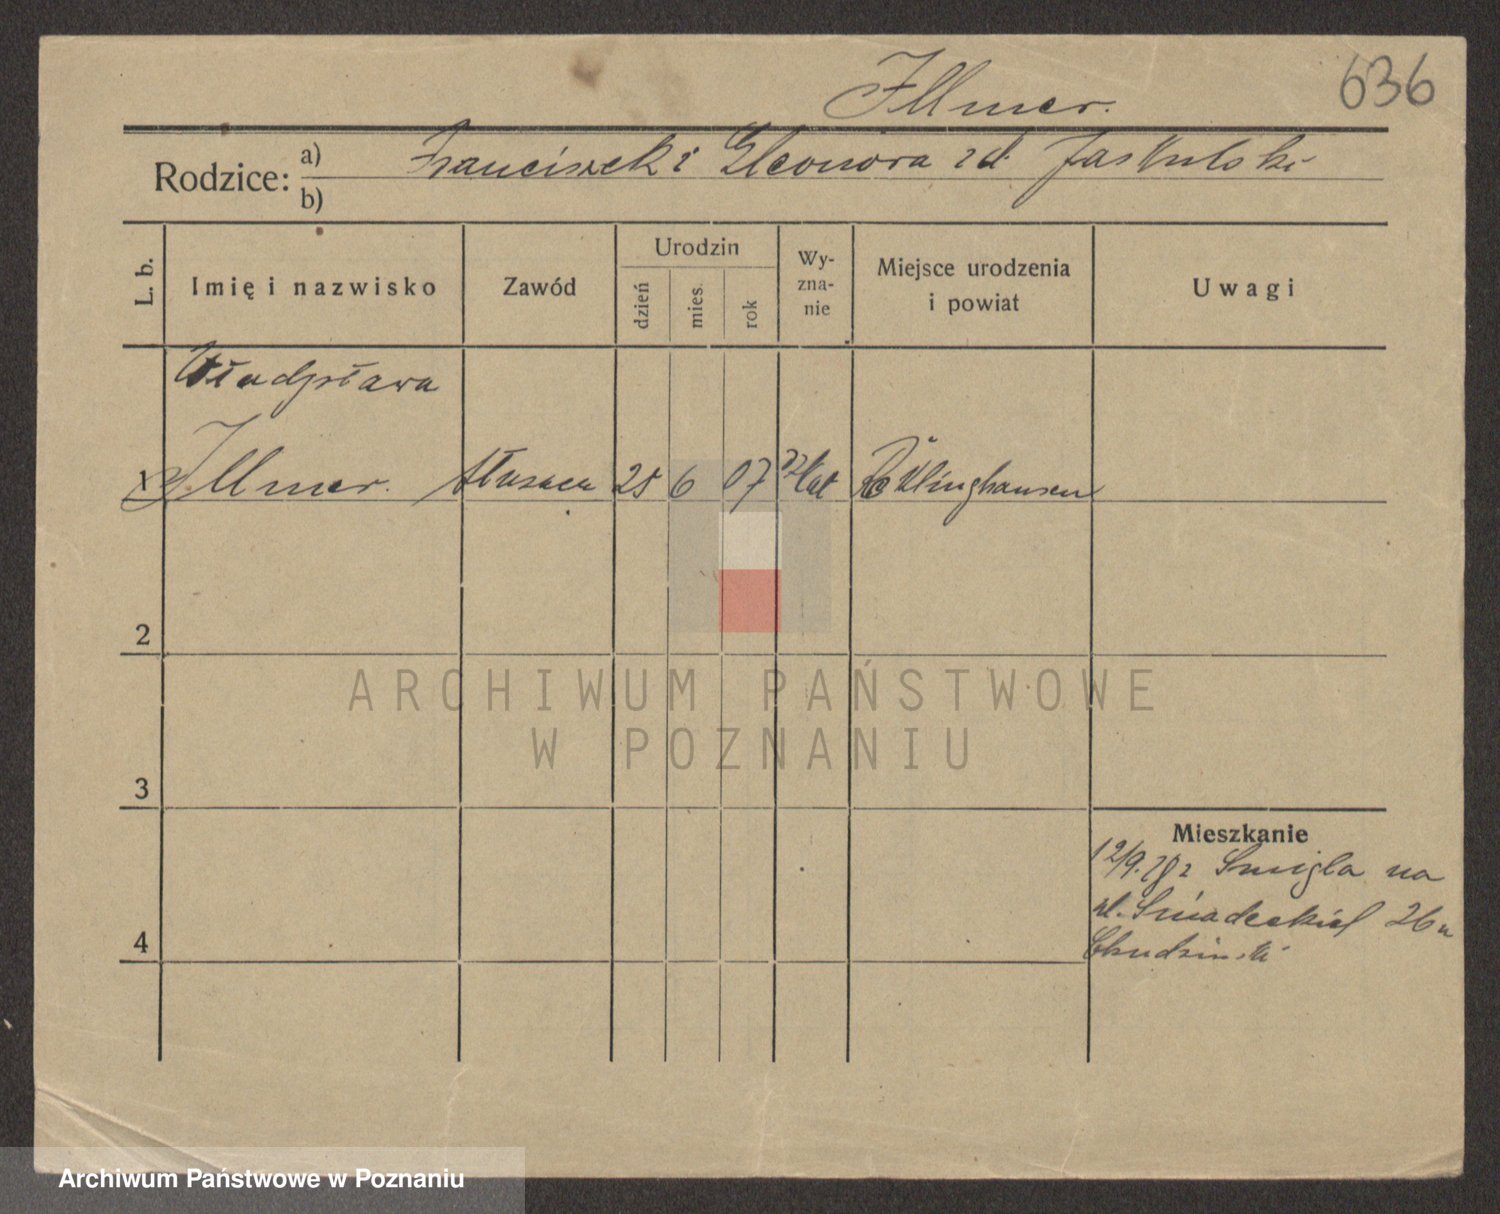 636
Illmer.
Rodzice: a) Franciszek i Eleonora zd. Jaskulski
b)
L. b.
Imię i nazwisko
Zawód
Urodzin
dzień
mies.
rok
Wy-
zna-
nie
Miejsce urodzenia
i powiat
Uwagi
Władysława
1 Illmer. służąca 25 6 07 kat Röhlinghausen
2
3
4
Mieszkanie
12/9. 28 z Śmigla na
ul. Śniadeckich 26 u
Chudziński
ARCHIWUM PAŃSTWOWE
W POZNANIU
Archiwum Państwowe w Poznaniu